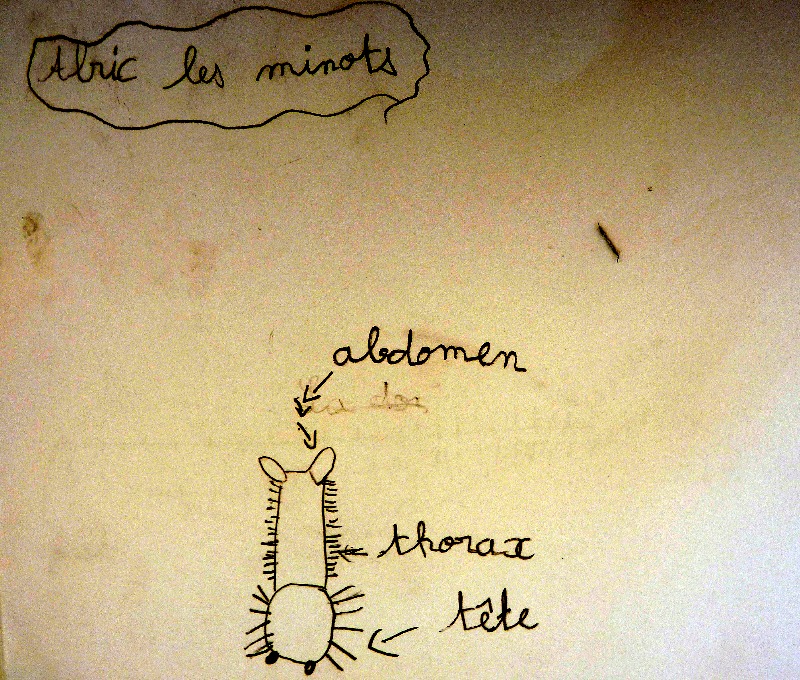 Alric les minots
abdomen
au dos
thorax
tête